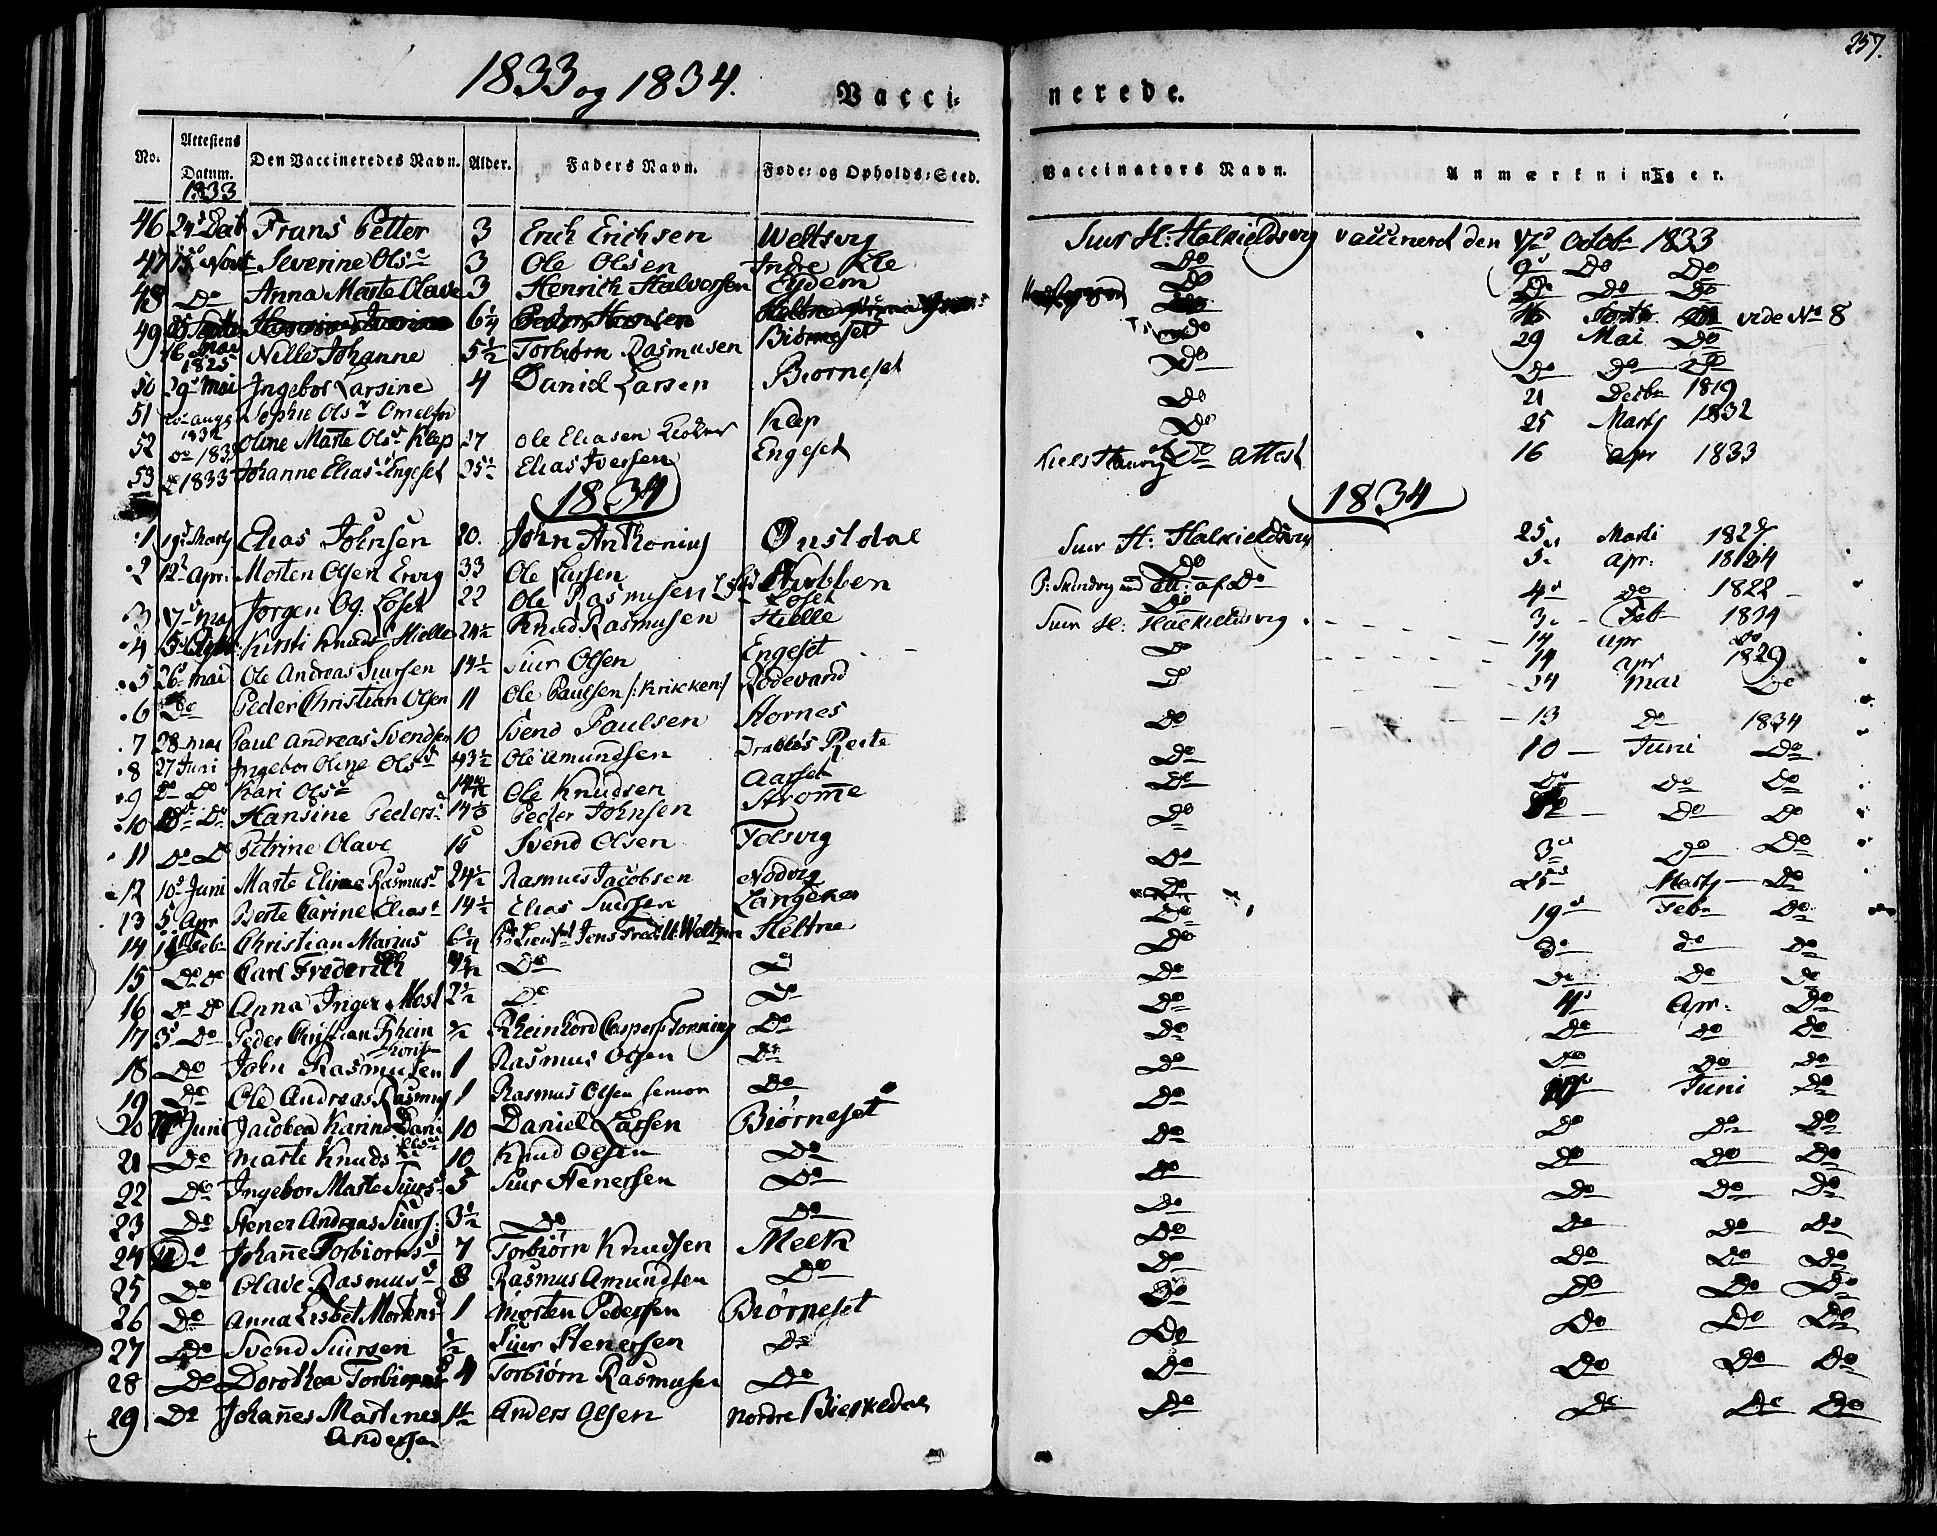 257.
1833 og 1834. Vacci- nerede.
No. Attestens Datum. Den Vaccineredes Navn. Alder. Faders Navn. Føde- og Opholds-Sted. Vaccinators Navn. Anmærkninger.
1833
46 24 Frans Petter 3 Erich Erichsen Weltsvig Siur H: Halkieldsvig vaccineret den 7d Octobr 1833
47 15d Novb Severine Ols 3 Ole Olsen Indre Kle Do 9d Do Do
48 Do Anna Marte Olave 3 Henrich Halvorsen Eydem Do Do Do Do
49 6 1/4 Peder Hansen vide No 8
16 Mai 1825 Nille Johanne 5 1/2 Torbiørn Rasmusen Biørneset Do 29 Mai Do
50 29d Mai Ingebor Larsine 4 Daniel Larsen Biørneset Do Do Do Do
51 1832 Sophie Ols Do 21 Decbr 1819
52 Do 183 Oline Marte Olsd Klep 27 Ole Eliasen Klep Do 25 Marty 1832
53 Do 1833 Johanne Elias Engeset 25 1/2 Elias Iversen Engeset Do Attest 16 Apr 1833
1834 1834
1 19d Marty Elias Johnsen 20. John Anthonius Ørstdal Siur H: Halkieldsvig 25 Marti 1827
2 12d Apr: Morten Olsen Ervig 33 Ole Larsen Nubben Do 5. Apr: 1834
3 7d Maj Jørgen Og: Løset 22 Ole Rasmusen Løset att: af Do 4d Do 1822
4 5 Kirsti Knuds Hielle 24 1/2 Knud Rasmusen Hielle Siur H: Halkieldsvig 3. Feb 1834
5 26d Mai Ole Andreas Siursen 14 1/2 Siur Olsen Engeset Do 14 Apr Do
6 Do Peder Christian Olsen 11 Ole Paulsen /:Krikken:/ Rødevand Do 14 Apr 1829
24 Mai Do
7 28 Mai Paul Andreas Svendsen 10 Svend Paulsen Hornes Do 13 Do 1834
8 27 Juni Ingebor Oline Olsd 43 1/2 Ole Amundsen Drabløs Reite Do 10 Juni Do
9 Do Do Kari Olsd 14 Ole Knudsen Aarset Do Do Do Do
10 Do Do Hansine Pedersd 14 1/2 Peder Johnsen Strømme Do Do Do
11 Do Do Petrine Olave 15 Svend Olsen Folsvig Do 3d Do Do
12 10d Juni Marte Eline Rasmusd 24 1/2 Rasmus Jacobsen Nødvig Do 25 Marty Do
13 5 Apr Berte Carine Elias 14 1/2 Elias Siursen Langenes Do 19d Feb Do
14 Feb Christian Marius 6 1/4 Pr Lieut Jens Fredrik Weltzien Heltne Do Do Do Do
15 Do Do Carl Frederich 4 1/2 Do Do Do Do Do Do
16 Do Do Anna Inger Most 2 1/2 Do Do Do 4d Apr: Do
17 3d Do Peder Christian Rhein 1/2 Rheinhord Caspers Tønning Do Do Do Do Do
18 Do John Rasmusen 1 Rasmus Olsen Do Do Do Do Do
19 Do Ole Andreas Rasmus 1 Rasmus Olsen senior Do Do Juni Do
20 Juni Jacobea Karine Dani 10 Daniel Larsen Biørneset Do Do Do Do
21 Do Marte Knuds 10 Knud Olsen Do Do Do Do Do
22 Do Ingebor Marte Siurs 5 Siur Stenersen Do Do Do Do Do
23 Do Stener Andreas Siurs: 3 1/2 Do Do Do Do Do Do
24 Do Johanne Torbiørnsd 7 Torbiørn Knudsen Melk Do Do Do Do
25 Do Olave Rasmusd 8 Rasmus Amundsen Do Do Do Do Do
26 Do Anna Lisbet Mortensd 1 Morten Pedersen Biørneset Do Do Do Do
27 Do Svend Siursen 1/2 Siur Stenersen Do Do Do Do Do
28 Do Dorothea Torbiørns 4 Torbiørn Rasmusen Do Do Do Do Do
29 Do Johannes Martines Andersen 1 1/2 Anders Olsen Nordre Bierkedal Do Do Do Do